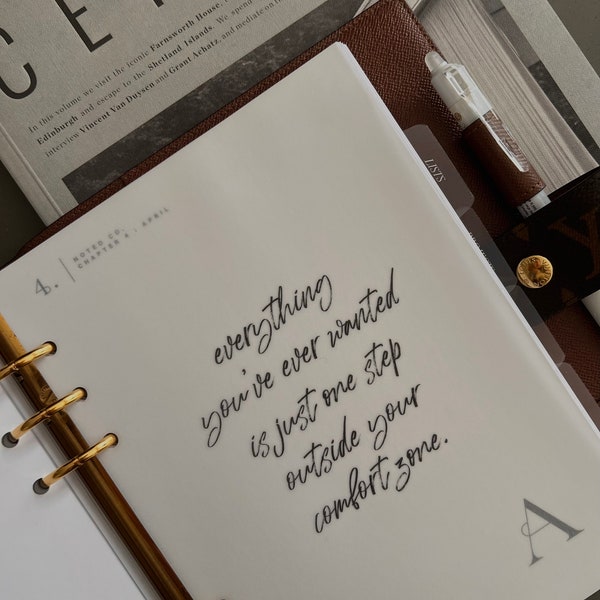 CE
In this volume we visit the iconic Farnsworth House,
Edinburgh and escape to the Shetland Islands. We spend
interview Vincent Van Duysen and Grant Achatz, and
LISTS
4.
NOTED CO.
CHAPTER 4 : APRIL
everything
you've ever wanted
is just one step
outside your
comfort zone.
A